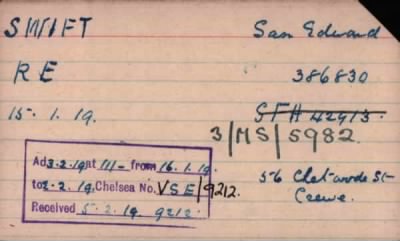 SWIFT Sam Edward
RE 386830
15.1.19. SFH 42913.
3/MS/5982.
Ad 3.2.19 at 111- from 16.1.19.
to 2.2.19. Chelsea No. VSE/9212.
Received 5.2.19. 9212.
56 Chetwode St
Crewe.